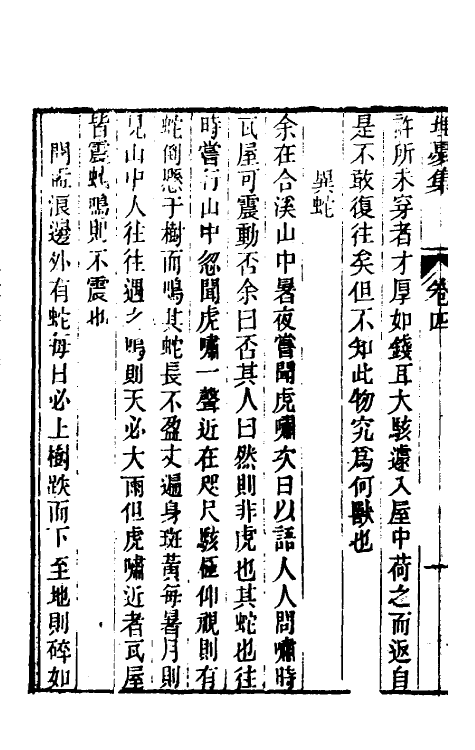 埋憂集 卷四 十
許所未穿者才厚如錢耳大駭遽入屋中荷之而返自
是不敢復往矣但不知此物究爲何獸也
異蛇
余在合溪山中暑夜嘗聞虎嘯次日以語人人問嘯時
瓦屋可震動否余曰否其人曰然則非虎也其蛇也往
時嘗行山中忽聞虎嘯一聲近在咫尺駭極仰視則有
蛇倒懸于樹而鳴其蛇長不盈丈遍身斑黃每暑月則
見山中人往往遇之鳴則天必大雨但虎嘯近者瓦屋
皆震蛇鳴則不震也
間孟浪邊外有蛇每日必上樹跌而下至地則碎如